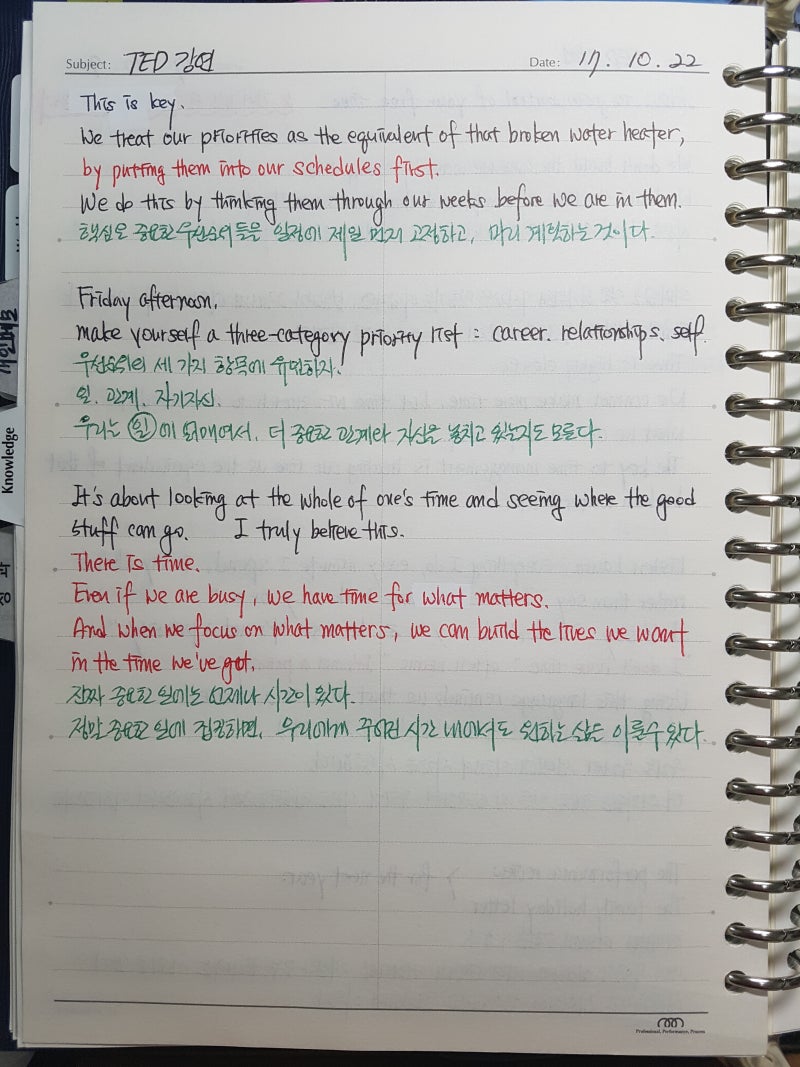 Subject: TED 강연
Date: 17. 10. 22
This is key.
We treat our priorities as the equivalent of that broken water heater,
by putting them into our schedules first.
We do this by thinking them through our weeks before we are in them.
핵심은 중요한 우선순위들을 일정에 제일 먼저 고정하고, 미리 계획하는것이다.
Friday afternoon,
make yourself a three-category priority list : career. relationships. self.
우선순위의 세 가지 항목에 유의하자.
일. 관계. 자기자신.
우리는 일에 얽매여서, 더 중요한 관계나 자신을 놓치고 있는지도 모른다.
It's about looking at the whole of one's time and seeing where the good
stuff can go. I truly believe this.
There is time.
Even if we are busy, we have time for what matters.
And when we focus on what matters, we can build the lives we want
in the time we've got.
진짜 중요한 일에는 언제나 시간이 있다.
정말 중요한 일에 집중하면, 우리에게 주어진 시간 내에서도 원하는 삶을 이룰수 있다.
Knowledge
Professional, Performance, Process